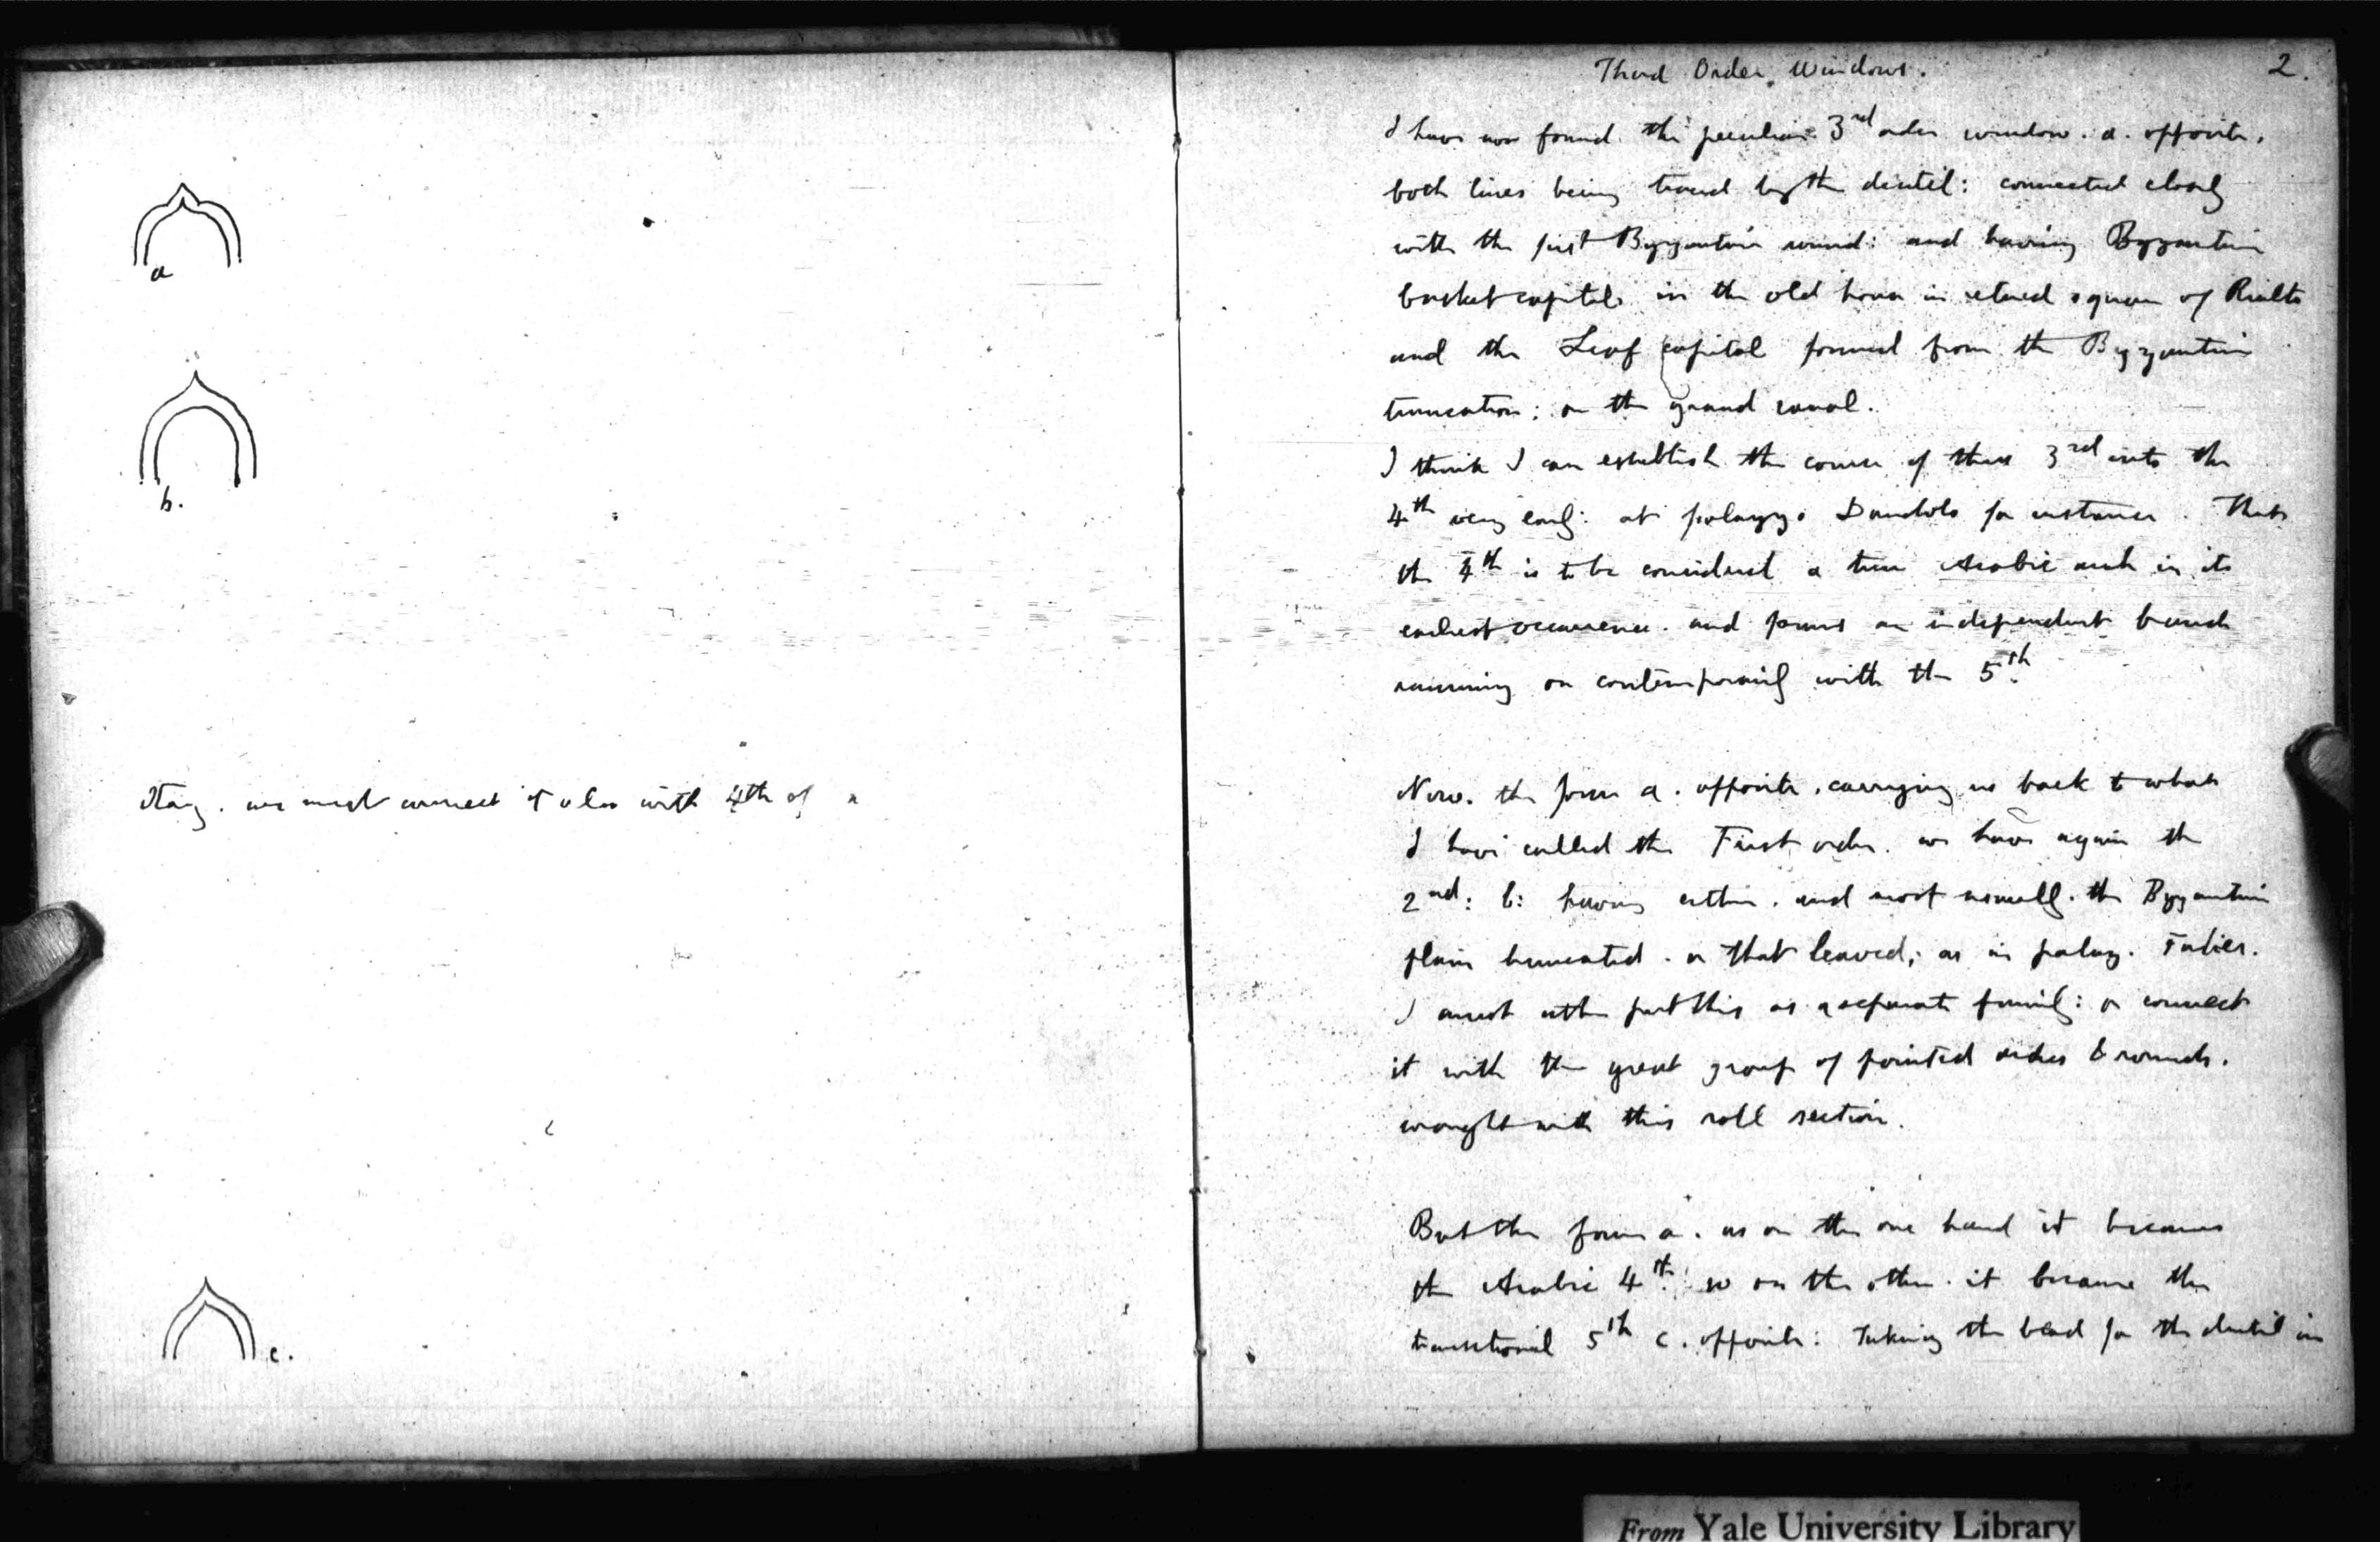 a
b.
Stay. we must connect it also with 4th of a
c.
Third Order Windows. 2.
I have now found the peculiar 3rd order window. a. opposite.
both lines being traced by the dentil: connected closely
with the first Byzantine round: and having Byzantine
basket capitals in the old house in retired square of Rialto
and the Leaf capital formed from the Byzantine
truncation: on the grand canal.
I think I can establish the course of these 3rd into the
4th very early: at palazzo Dandolo for instance. That
the 4th is to be considered a true Arabic arch in its
earliest occurrence. and forms an independent branch
running on contemporarily with the 5th.
Now. the form a. opposite. carrying us back to what
I have called the First order. we have again the
2nd: b: having either. and most usually. the Byzantine
plain truncated. or that leaved; as in palaz. Falier.
I must either put this as a separate family: or connect
it with the great group of pointed arches & rounds.
wrought with this roll section.
But the form a. as on the one hand it becomes
the Arabic 4th. so on the other. it became the
transitional 5th c. opposite: Taking the bead for the dentil in
From Yale University Library